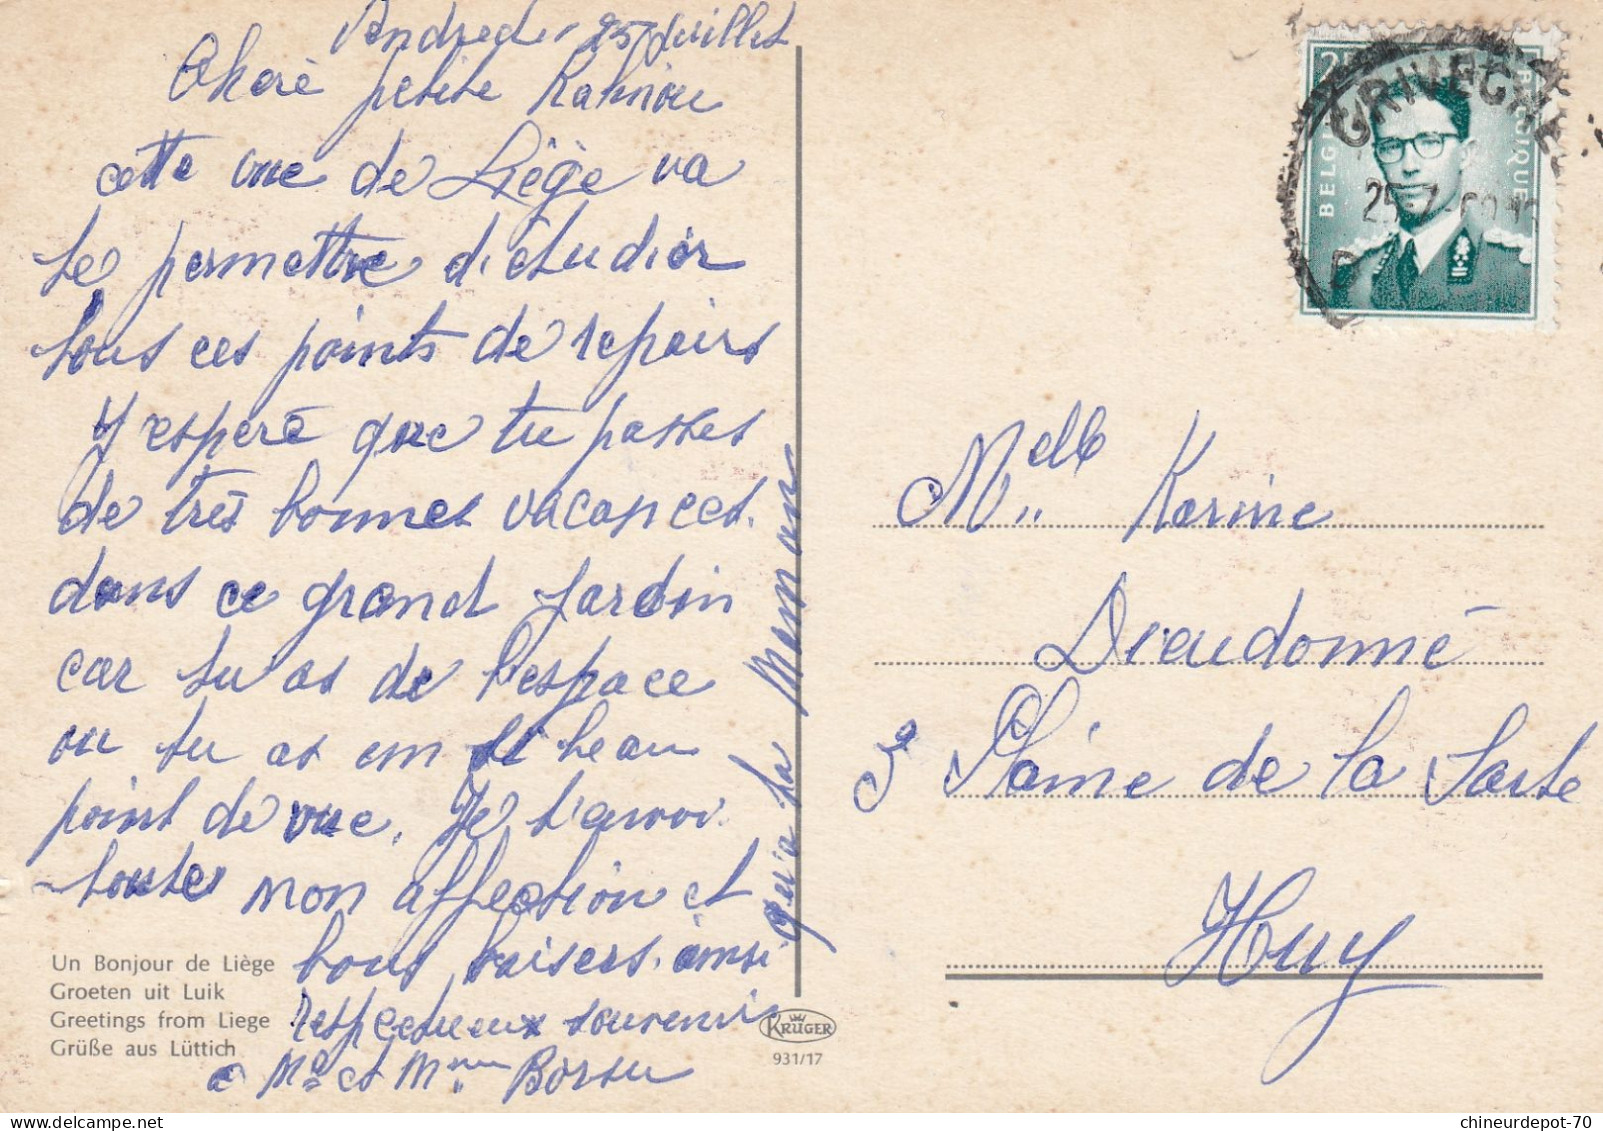 Vendredi 25 Juillet
Chere petite Karinou
cette vue de Liège va
te permettre d'etudier
tous ces points de repairs
J'espere que tu passes
de très bonnes vacances.
dans ce grand Jardin
car tu as de l'espace
ou tu as un beau
point de vue. Je t'envoi
toutes mon affection et
bons baisers. ainsi
qu'a ta Maman
respectueux souvenirs
Mr et Mme Borsu
Un Bonjour de Liège
Groeten uit Luik
Greetings from Liege
Grüße aus Lüttich
KRÜGER
931/17
BELGIË BELGIQUE
GRIVEGNEE
25-7-69
Melle Karine
Dieudonné
Plaine de la Sarte
Huy
chineurdepot-70